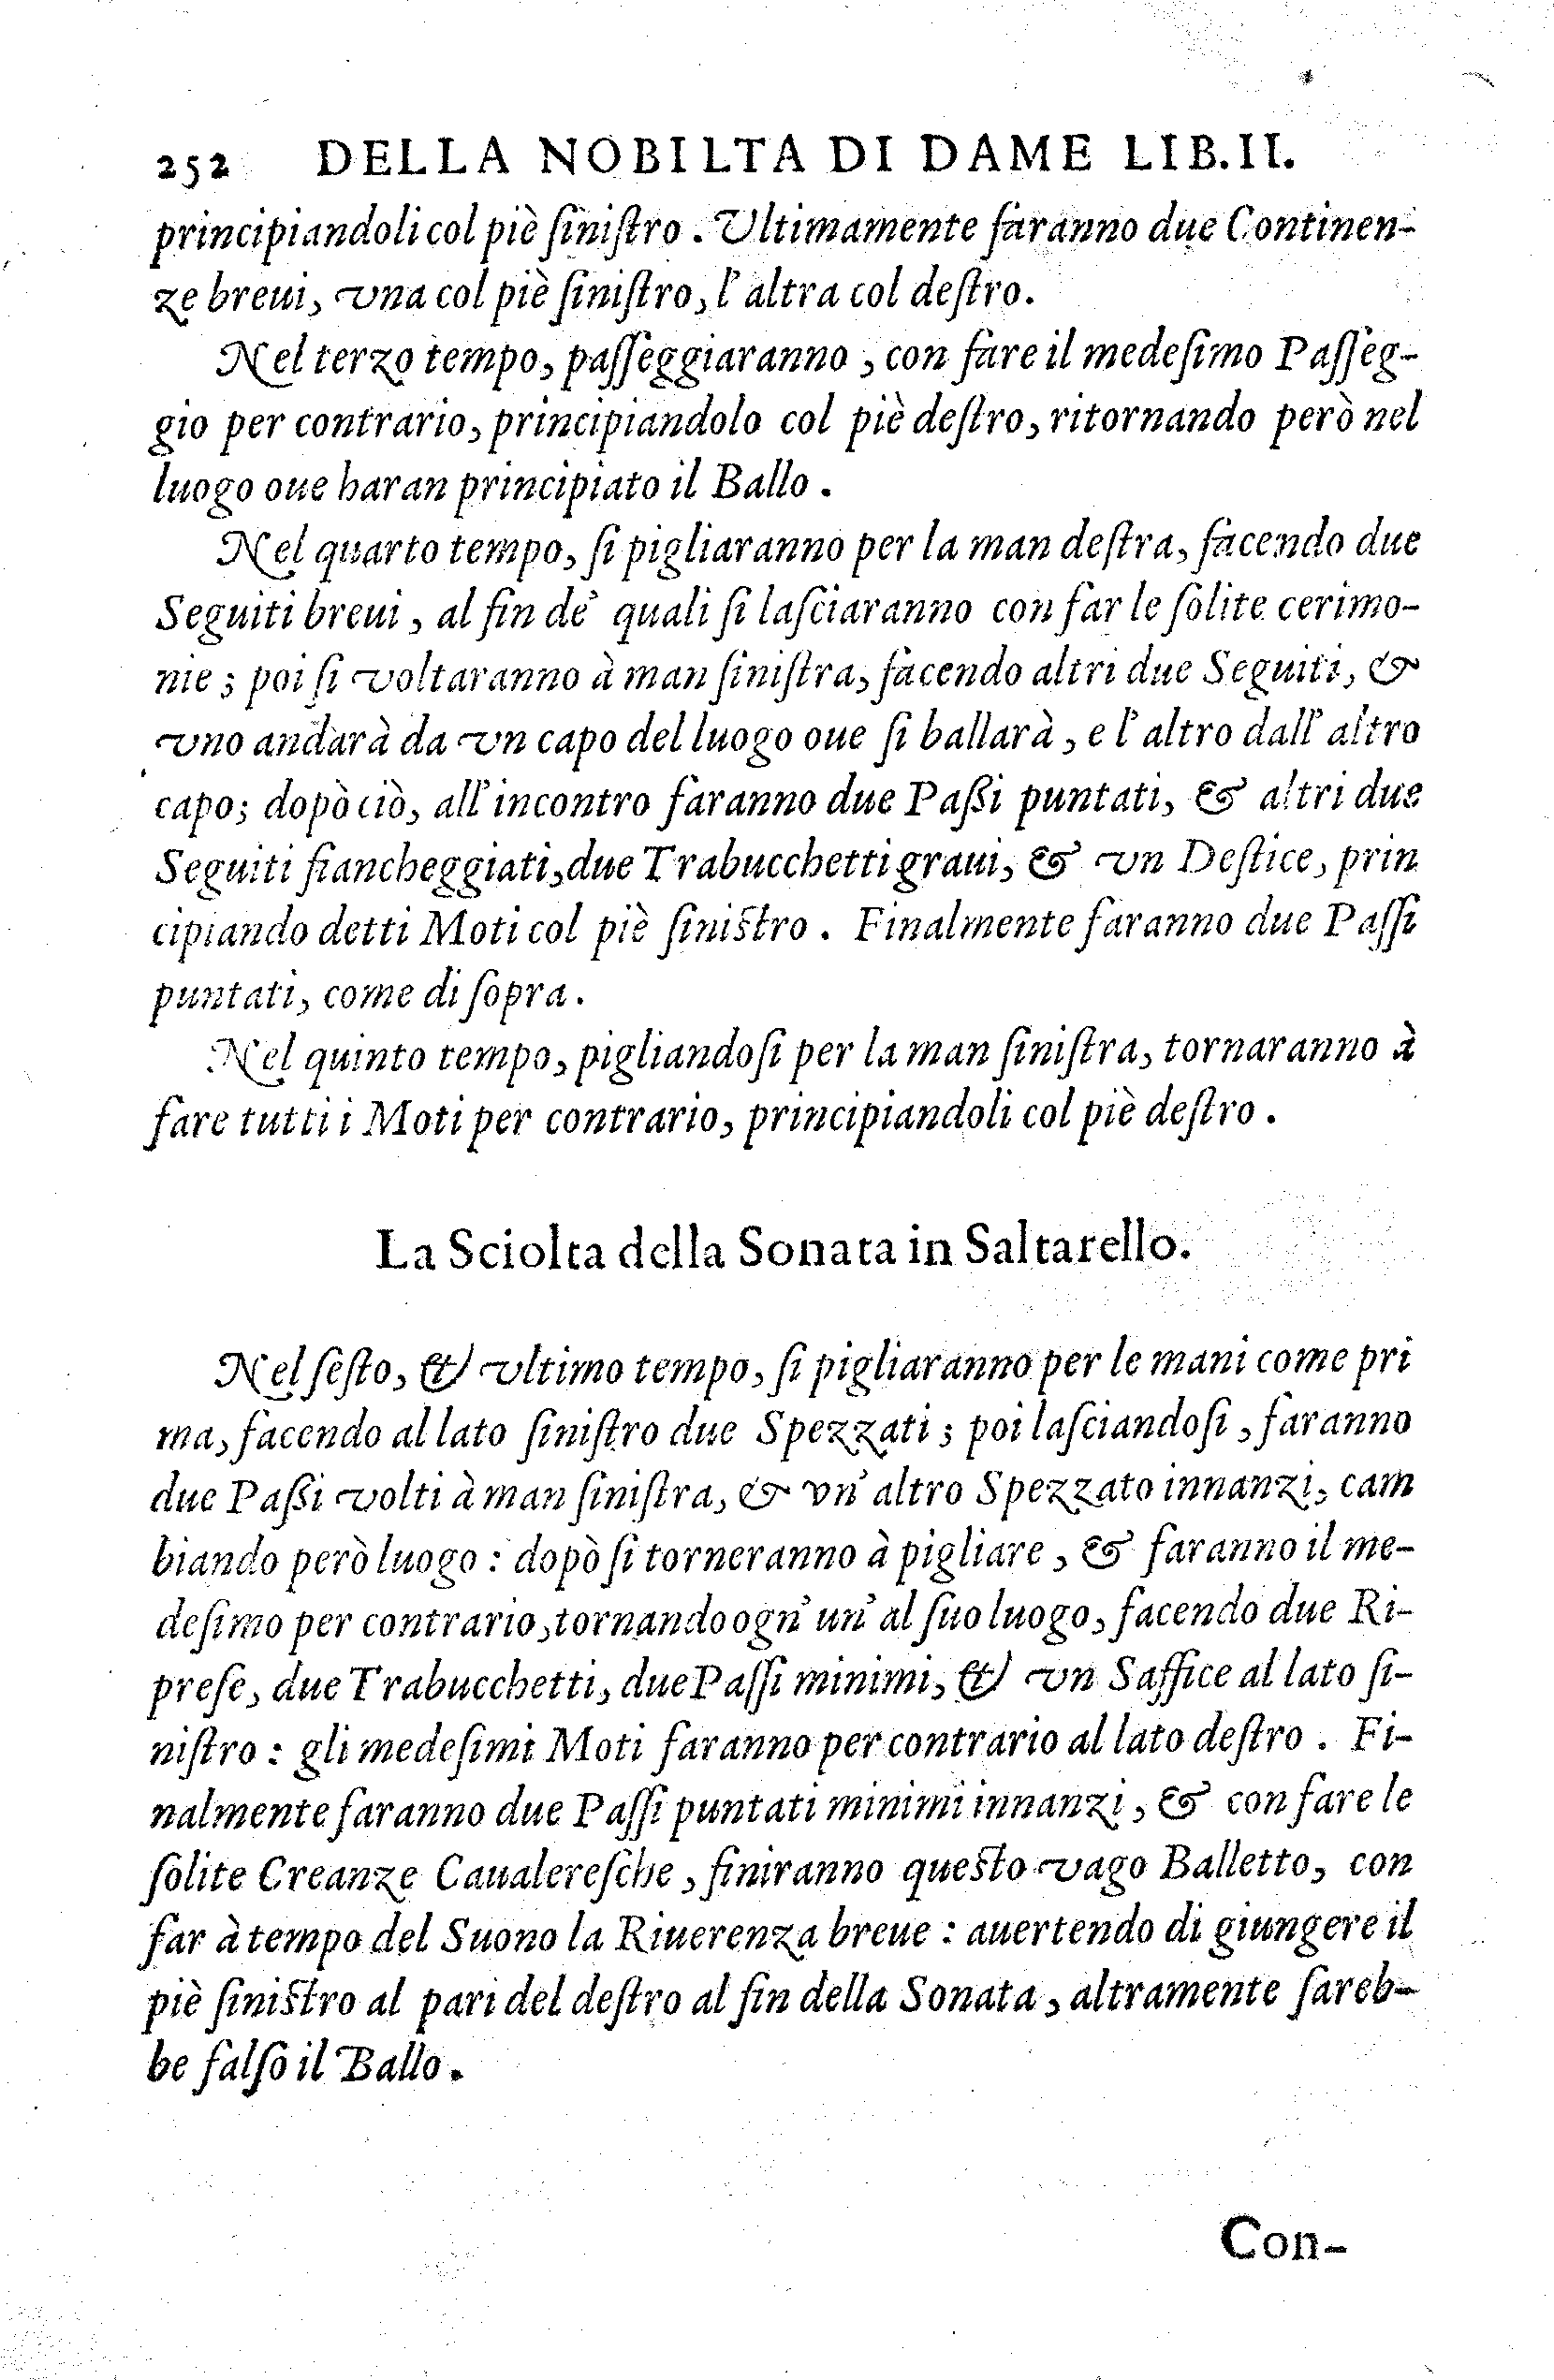 252 DELLA NOBILTA DI DAME LIB. II.
principiandoli col piè ſiniſtro. Ultimamente faranno due Continen-
ze breui, vna col piè ſiniſtro, l'altra col deſtro.
Nel terzo tempo, paſſeggiaranno, con fare il medeſimo Paſſeg-
gio per contrario, principiandolo col piè deſtro, ritornando però nel
luogo oue haran principiato il Ballo.
Nel quarto tempo, ſi pigliaranno per la man deſtra, facendo due
Seguiti breui, al fin de' quali ſi laſciaranno con far le ſolite cerimo-
nie; poi ſi voltaranno à man ſiniſtra, facendo altri due Seguiti, &
vno andarà da vn capo del luogo oue ſi ballarà, e l'altro dall'altro
capo; dopò ciò, all'incontro faranno due Paßi puntati, & altri due
Seguiti fiancheggiati, due Trabucchetti graui, & vn Deſtice, prin
cipiando detti Moti col piè ſiniſtro. Finalmente faranno due Paſſi
puntati, come di ſopra.
Nel quinto tempo, pigliandoſi per la man ſiniſtra, tornaranno à
fare tutti i Moti per contrario, principiandoli col piè deſtro.
La Sciolta della Sonata in Saltarello.
Nel ſeſto, & vltimo tempo, ſi pigliaranno per le mani come pri
ma, facendo al lato ſiniſtro due Spezzati; poi laſciandoſi, faranno
due Paßi volti à man ſiniſtra, & vn'altro Spezzato innanzi, cam
biando però luogo: dopò ſi torneranno à pigliare, & faranno il me-
deſimo per contrario, tornando ogn'un'al ſuo luogo, facendo due Ri-
preſe, due Trabucchetti, due Paſſi minimi, & vn Saffice al lato ſi-
niſtro: gli medeſimi Moti faranno per contrario al lato deſtro. Fi-
nalmente faranno due Paſſi puntati minimi innanzi, & con fare le
ſolite Creanze Caualereſche, finiranno queſto vago Balletto, con
far à tempo del Suono la Riuerenza breue: auertendo di giungere il
piè ſiniſtro al pari del deſtro al fin della Sonata, altramente ſareb-
be falſo il Ballo.
Con-